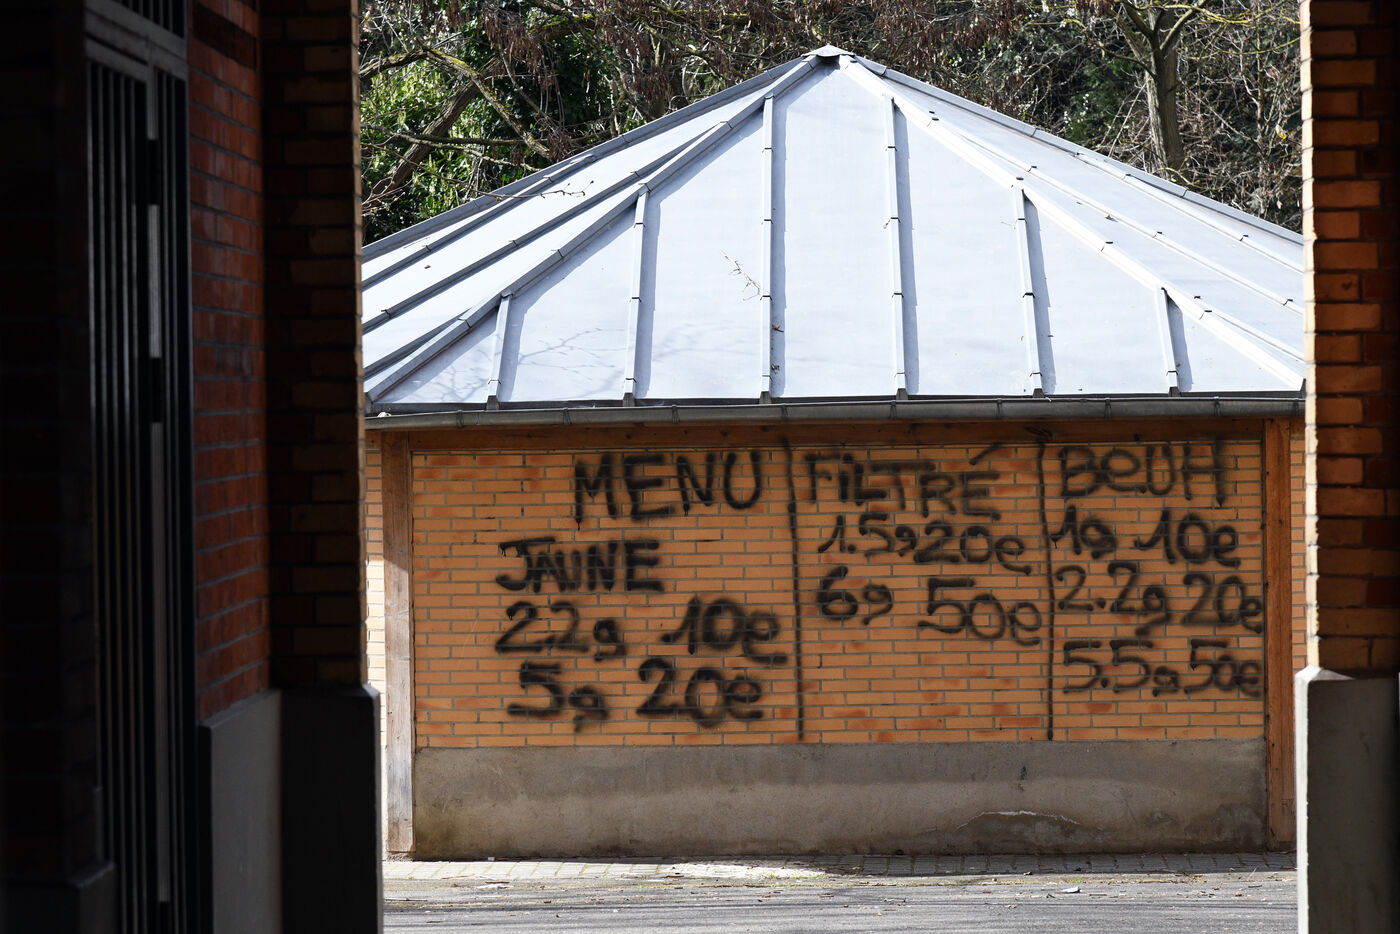 MENU
JAUNE
2.2g 10e
5g 20e
FILTRÉ
1.5g 20e
6g 50e
BEUH
1g 10e
2.2g 20e
5.5g 50e